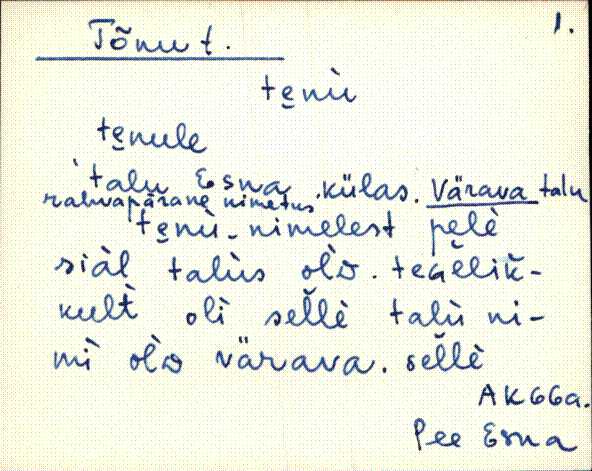 1.
Tõnu t.
te̮nù
te̮nule
talu Esna külas. Värava talu
rahvapärane nimetus
te̮nù-nimelest pelè
siàl talùs olò. teǵèlik̆-
kult̀ oli sel̆lè talù ni-
mì olò värava. sel̆lè
AK66a.
Pee Esna